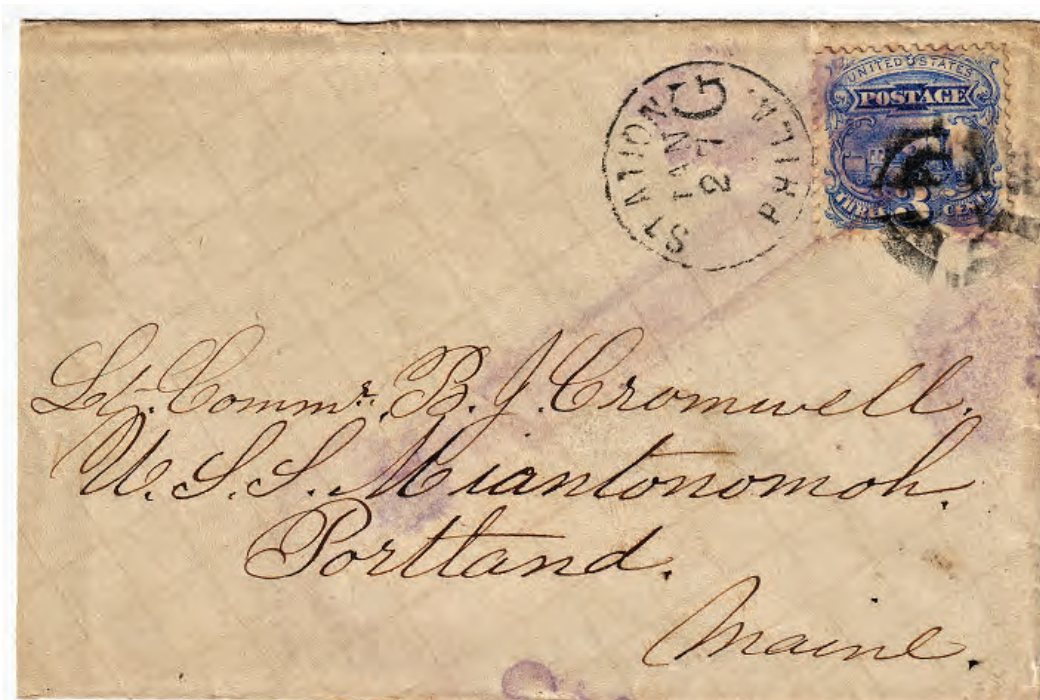 STATION G PHILA.
JAN
27
UNITED STATES
POSTAGE
THREE 3 CENTS
Lt. Commr. B. J. Cromwell.
U. S. S. Miantonomoh.
Portland.
Maine.